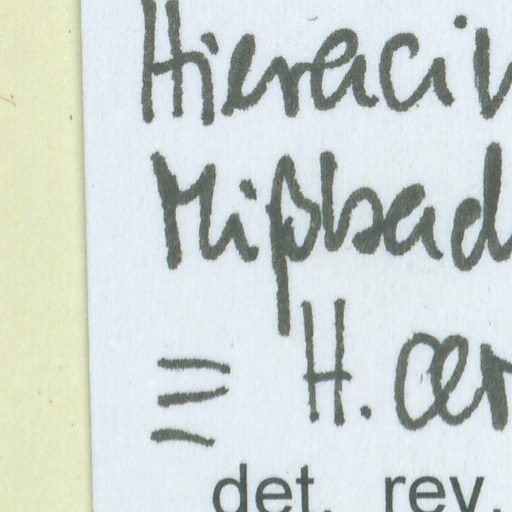 Hieraciu
Mißbad
≡ H. aer
det. rev.